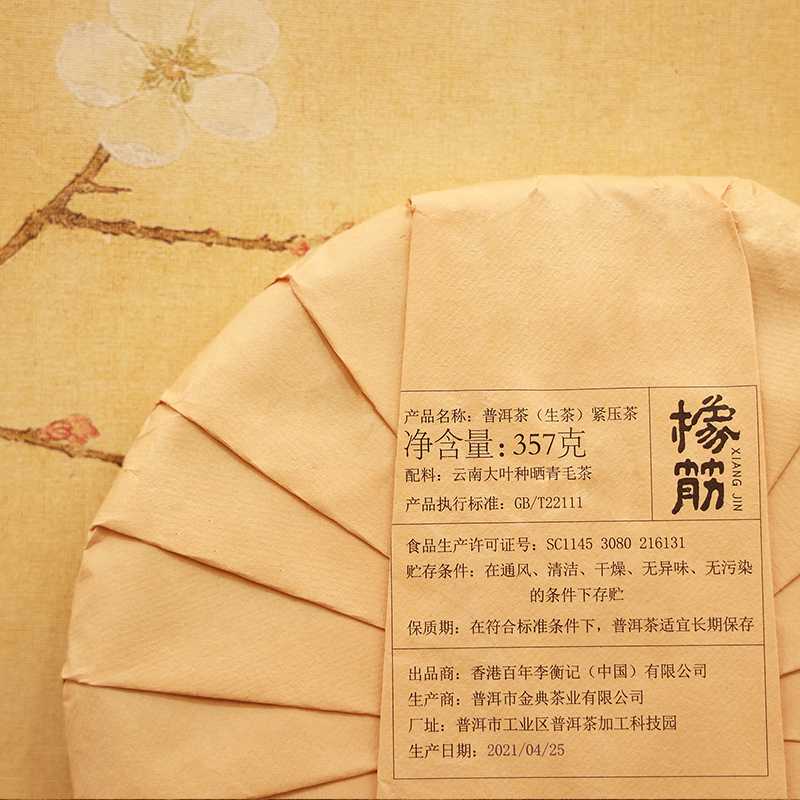 产品名称：普洱茶（生茶）紧压茶
净含量：357克
配料：云南大叶种晒青毛茶
产品执行标准：GB/T22111
橡筋
XIANG JIN
食品生产许可证号：SC1145 3080 216131
贮存条件：在通风、清洁、干燥、无异味、无污染
的条件下存贮
保质期：在符合标准条件下，普洱茶适宜长期保存
出品商：香港百年李衡记（中国）有限公司
生产商：普洱市金典茶业有限公司
厂址：普洱市工业区普洱茶加工科技园
生产日期：2021/04/25